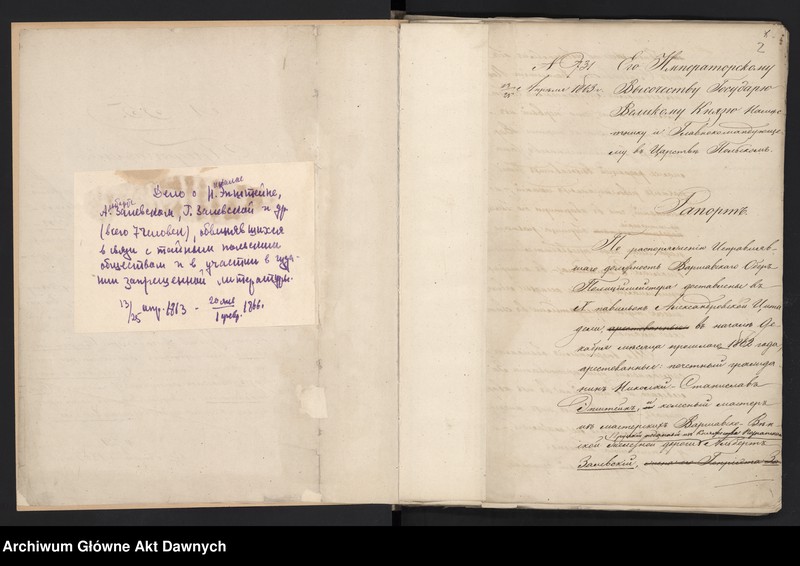 Дело о Николае
Н. Эпштейне,
Альберте Залевском, Г. Залевской и др.
(всего 7 человек), обвинявшихся
в связи с тайным польским
обществом и в участии в изда-
нии запрещенной литературы.
13/25 апр. 1863 – 20 янв./1 февр. 1866 г.
2
№ 731
Апреля 1863 г.
Его Императорскому
Высочеству Государю
Великому Князю Намѣст-
нику и Главнокомандующе-
му въ Царствѣ Польскомъ.
Рапортъ.
По распоряженію Исправляв-
шаго должность Варшавскаго Оберъ
Полиціймейстера доставлены въ
X павильонъ Александровской Цита-
дели, арестованные въ началѣ Де-
кабря мѣсяца прошлаго 1862 года,
арестованные: почетный гражда-
нинъ Николай-Станиславъ
Эпштейнъ, и колесный мастеръ
изъ мастерскихъ Варшавско-Вѣн-
ской желѣзной дороги Альбертъ
Залевскій,
Archiwum Główne Akt Dawnych